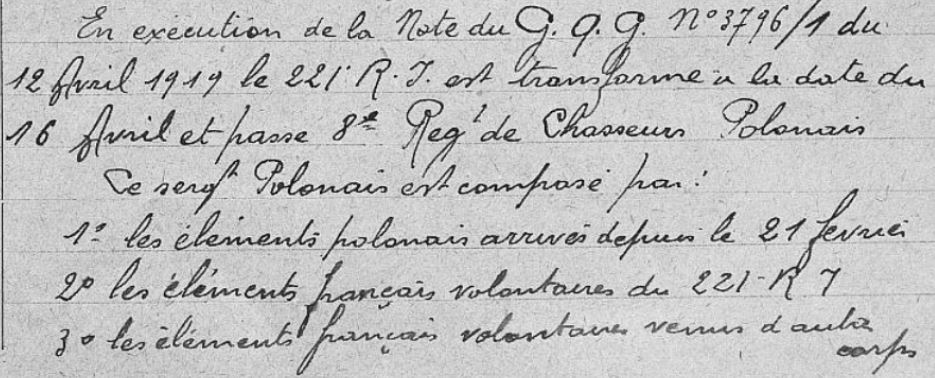 En exécution de la Note du G. Q. G. N° 3796/1 du
12 Avril 1919 le 221e R. I. est transformé à la date du
16 Avril et passe 8e Regt de Chasseurs Polonais
Ce Polonais est composé par :
1° les éléments polonais arrivés depuis le 21 fevrier
2° les éléments français volontaires du 221e R I
3° les éléments français volontaires venus d'autre
corps